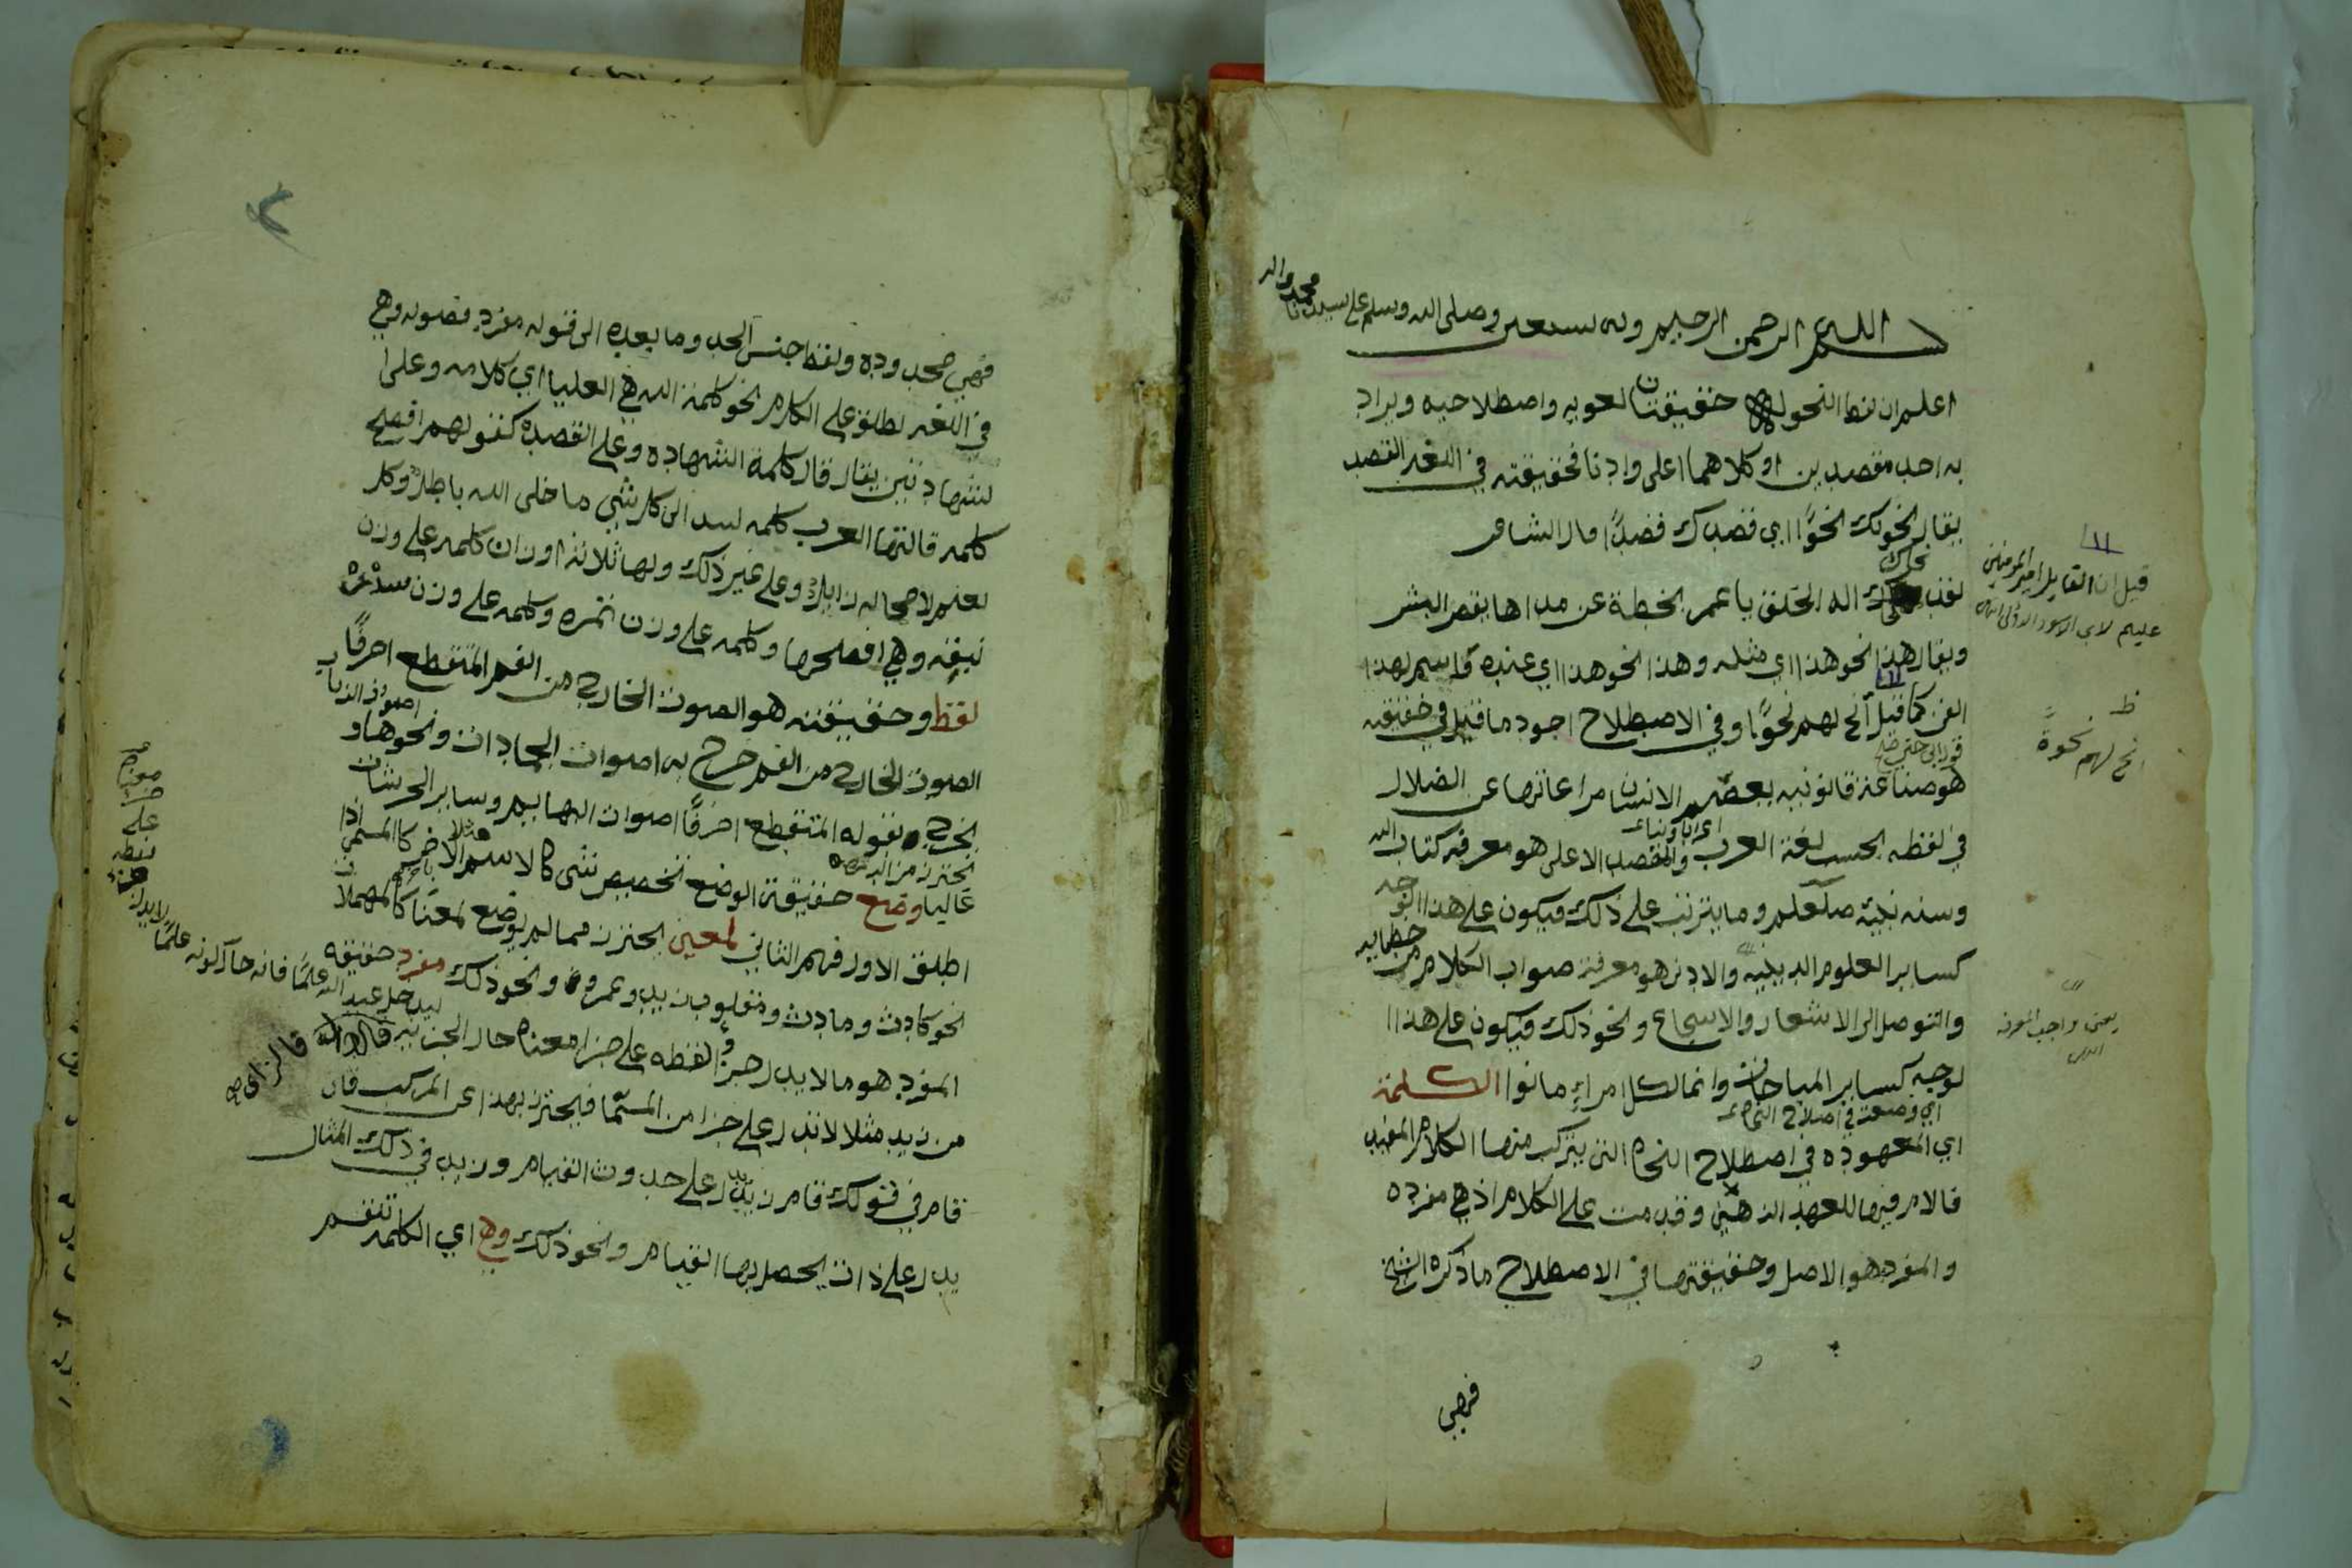 بسم الله الرحمن الرحيم وبه نستعين وصلى الله وسلم على سيدنا محمد واله
اعلم ان لفظ النحو له حقيقتان لغويه واصطلاحيه ويراد
به احد مقصدين او كلاهما اعلى وادنا فحقيقته في اللغه القصد
يقال نحوتك نحوًا اي قصدتك قصدًا قال الشاعر
نحاك اله الخلق يا عمر الخطة عن مداها يقصر البشر
ويقال هذا نحو هذا اي مثله وهذا نحو هذا اي عنده واسم لهذا
الفن كما قيل انح لهم نحوًا وفي الاصطلاح اجود ما قيل في حقيقته
هو صناعة قانونيه يعصم الانسان مراعاتها عن الضلال
في لفظه بحسب لغة العرب والمقصد الاعلى هو معرفة كتاب الله
وسنه نبيه صلعلم وما يترتب على ذلك فيكون على هذا الوجه
كساير العلوم الدينيه والادنى هو معرفة صواب الكلام من خطايه
والتوصل الى الاشعار والاسجاع ونحو ذلك فيكون على هذا ا
لوجه كساير المباحات وانما لكل امراءٍ ما نوا الكلمة
اي وضعت في اصلاح النحاه
اي المعهوده في اصطلاح النحاه التي يتركب منها الكلام المفيد
فالام فيها للعهد الذهني وقدمت على الكلام اذ هي مفرده
والمفرد هو الاصل وحقيقتها في الاصطلاح ما ذكره الشيخ
فهي
قيل ان القايل امير المومنين
عليم لابي الاسود الدؤلي
ظ
انح لهم نحوةً
يعني واجب المعرفه
فهي محدوده ولفظ جنس الحد وما بعده الى قوله مفرد فصوله وهي
في اللغه تطلق على الكلام نحو كلمة الله هي العليا اي كلامه وعلى ا
لشهادتين يقال قال كلمة الشهاده وعلى القصيده كقولهم افصح
كلمه قالتها العرب كلمه لبيد الا كل شي ما خلى الله باطلٌ وكل
نعيم لا محاله زايلٌ وعلى غير ذلك ولها ثلاثة اوزان كلمه على وزن
نبقه وهي افصلحها وكلمه على وزن تمره وكلمه على وزن سدره
لفظ وحقيقته هو الصوت الخارج من الفم المتقطع احرفًا
الصوت الخارج من الفم خرج به اصوات الجمادات ونحوها و
يخرج بقوله المتقطع احرفًا اصوات البهايم وساير الحرشات
غالبا وضع حقيقة الوضع تخصيص شي كالاسم الاخر كالمسمى اذا
اطلق الاول فهم الثاني لمعنى يحترز مما لم يوضع لمعنا كالمهملات
نحو كادث ومادث ومقلوب زيد وعمرو ونحو ذلك مفرد حقيقه
المفرد هو ما لا يدل جزء لفظه على جزا معناه حال الجزئيه
من زيد مثلا لا تدل على جزا من المسمّا فيحترز بهذا عن المركب فان
قام في قولك قام زيد يدل على حدوث القيام وزيد في ذلك المثال
يدل على ذات يحصل بها القيام ونحو ذلك وهي اي الكلمه تنقسم
ليدخل عبد الله علمًا فانه حال كونه علمًا لا يدل